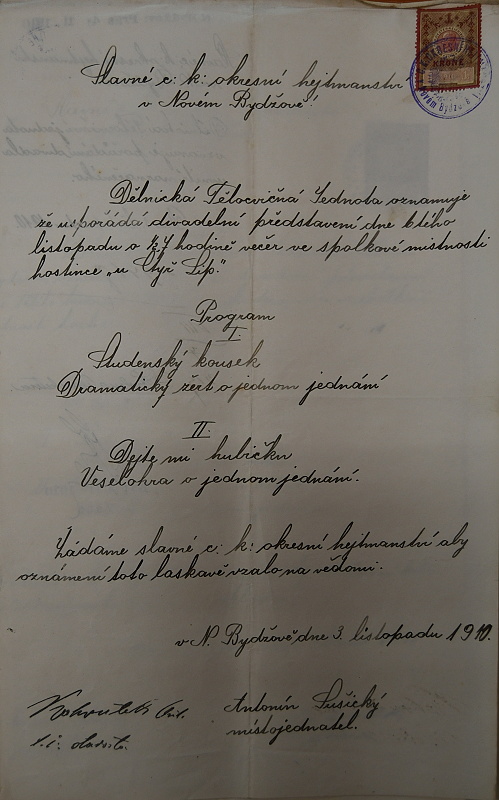 KRONE
Slavné c: k: okresní hejtmanství
v Novém Bydžově!
Dělnická Tělocvičná Jednota oznamuje
že uspořádá divadelní představení dne 6tého
listopadu o ½7 hodině večer ve spolkové místnosti
hostince „u Čtyř Lip."
Program
I.
Studenský kousek
Dramatický žert o jednom jednání
II.
Dejte mi hubičku
Veselohra o jednom jednání.
Žádáme slavné c: k: okresní hejtmanství aby
oznámení toto laskavě vzalo na vědomí.
v N. Bydžově dne 3. listopadu 1910.
Antonín Sušický
místojednatel.